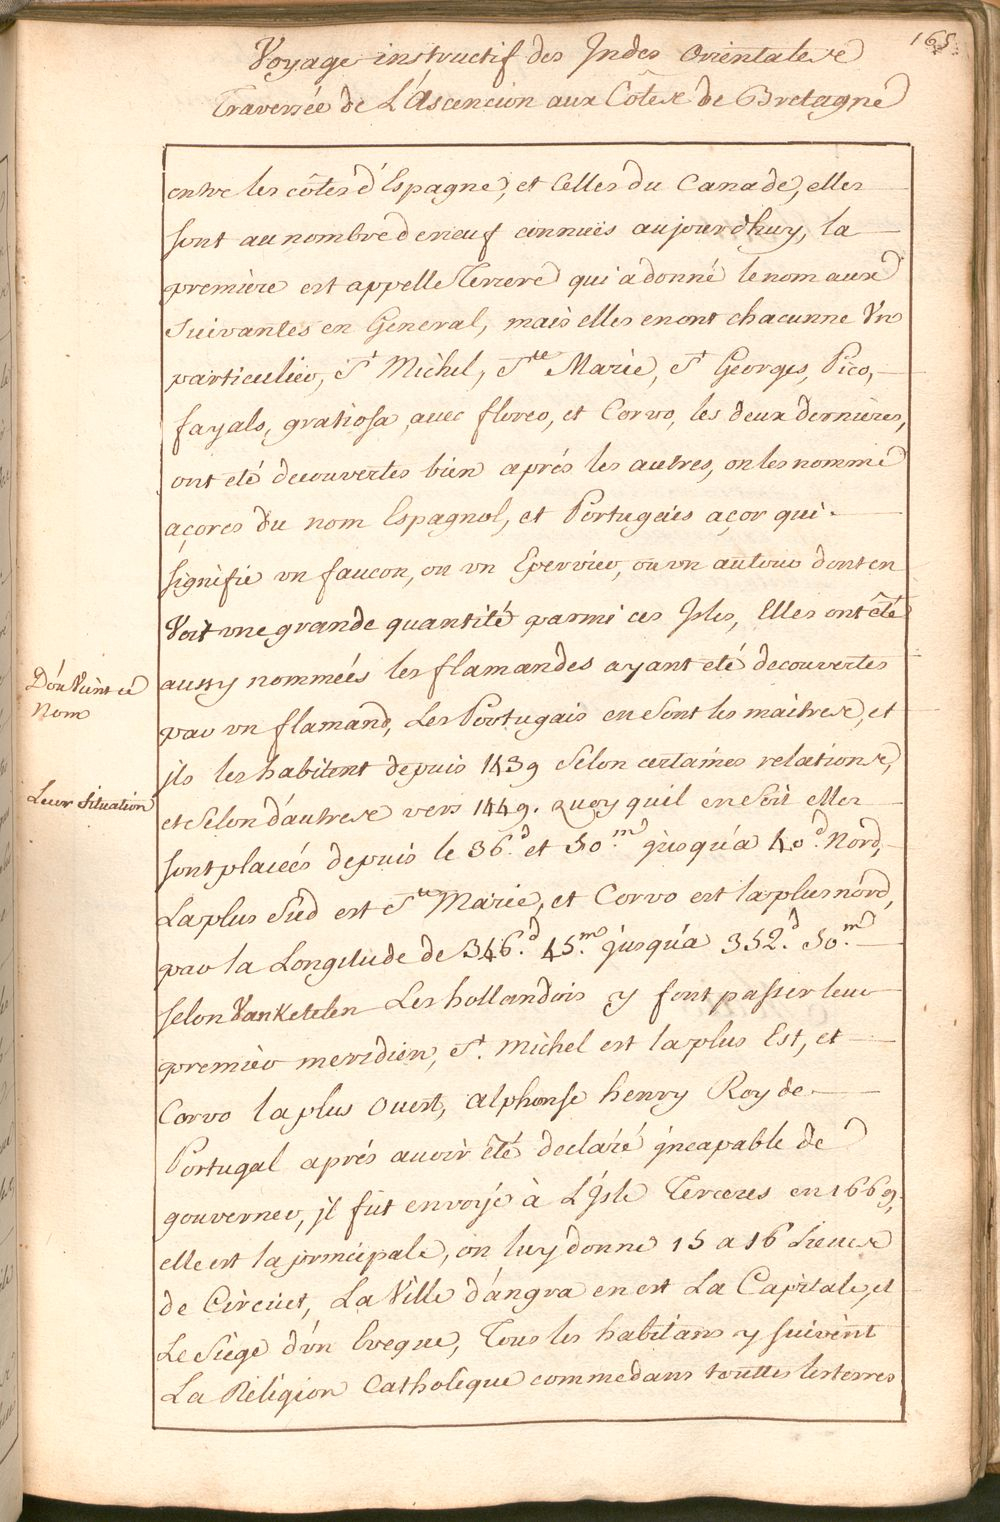 165
Voyage instructif des Indes Orientales
Traversée de L'Ascencion aux Côtes de Bretagne
entre les côtes d'Espagne, et Celles du Canade, elles
sont au nombre de neuf connuës aujourd'huy, la
première est appelle Tercere qui a donné le nom aux
Suivantes en General, mais elles en ont chacunne Vn
particulier, St Michel, Ste Marie, St Georges, Pico,
fayals, gratiosa avec flores, et Corvo, les deux dernières,
ont eté decouvertes bien aprés les autres, on les nomme
açores du nom Espagnol, et Portugais açor qui
signifie vn faucon, ou vn Epervier, ou vn autour dont en
Voit vne grande quantité parmi ces Isles, Elles ont été
aussy nommeés les flamandes ayant eté decouvertes
D'ou Vient ce
Nom
par vn flamand, Les Portugais en sont les maitres, et
ils les habitent depuis 1439 Selon certaines relations,
Leur Situation
et Selon d'autres vers 1449. quoy quil en Soit elles
sont placeés depuis le 36.d et 50.m jusqu'a 40.d Nord,
La plus Sud est Ste Marie, et Corvo est la plus nord,
par la Longitude de 346.d 45.m jusqu'a 352.d 50.m
selon Vanketelen Les hollandois y font passer leur
premier meridien, St. Michel est la plus Est, et
Corvo la plus Ouest, alphonse henry Roy de
Portugal aprés avoir été declaré incapable de
gouverner, il fut envoyé à L'Isle Terceres en 1669,
elle est la principale, on luy donne 15 a 16 Lieues
de Circuet, La Ville d'angra en est La Capitale, et
Le Siège d'vn Eveque, Tous les habitans y suivent
La Religion Catholique comme dans touttes les terres